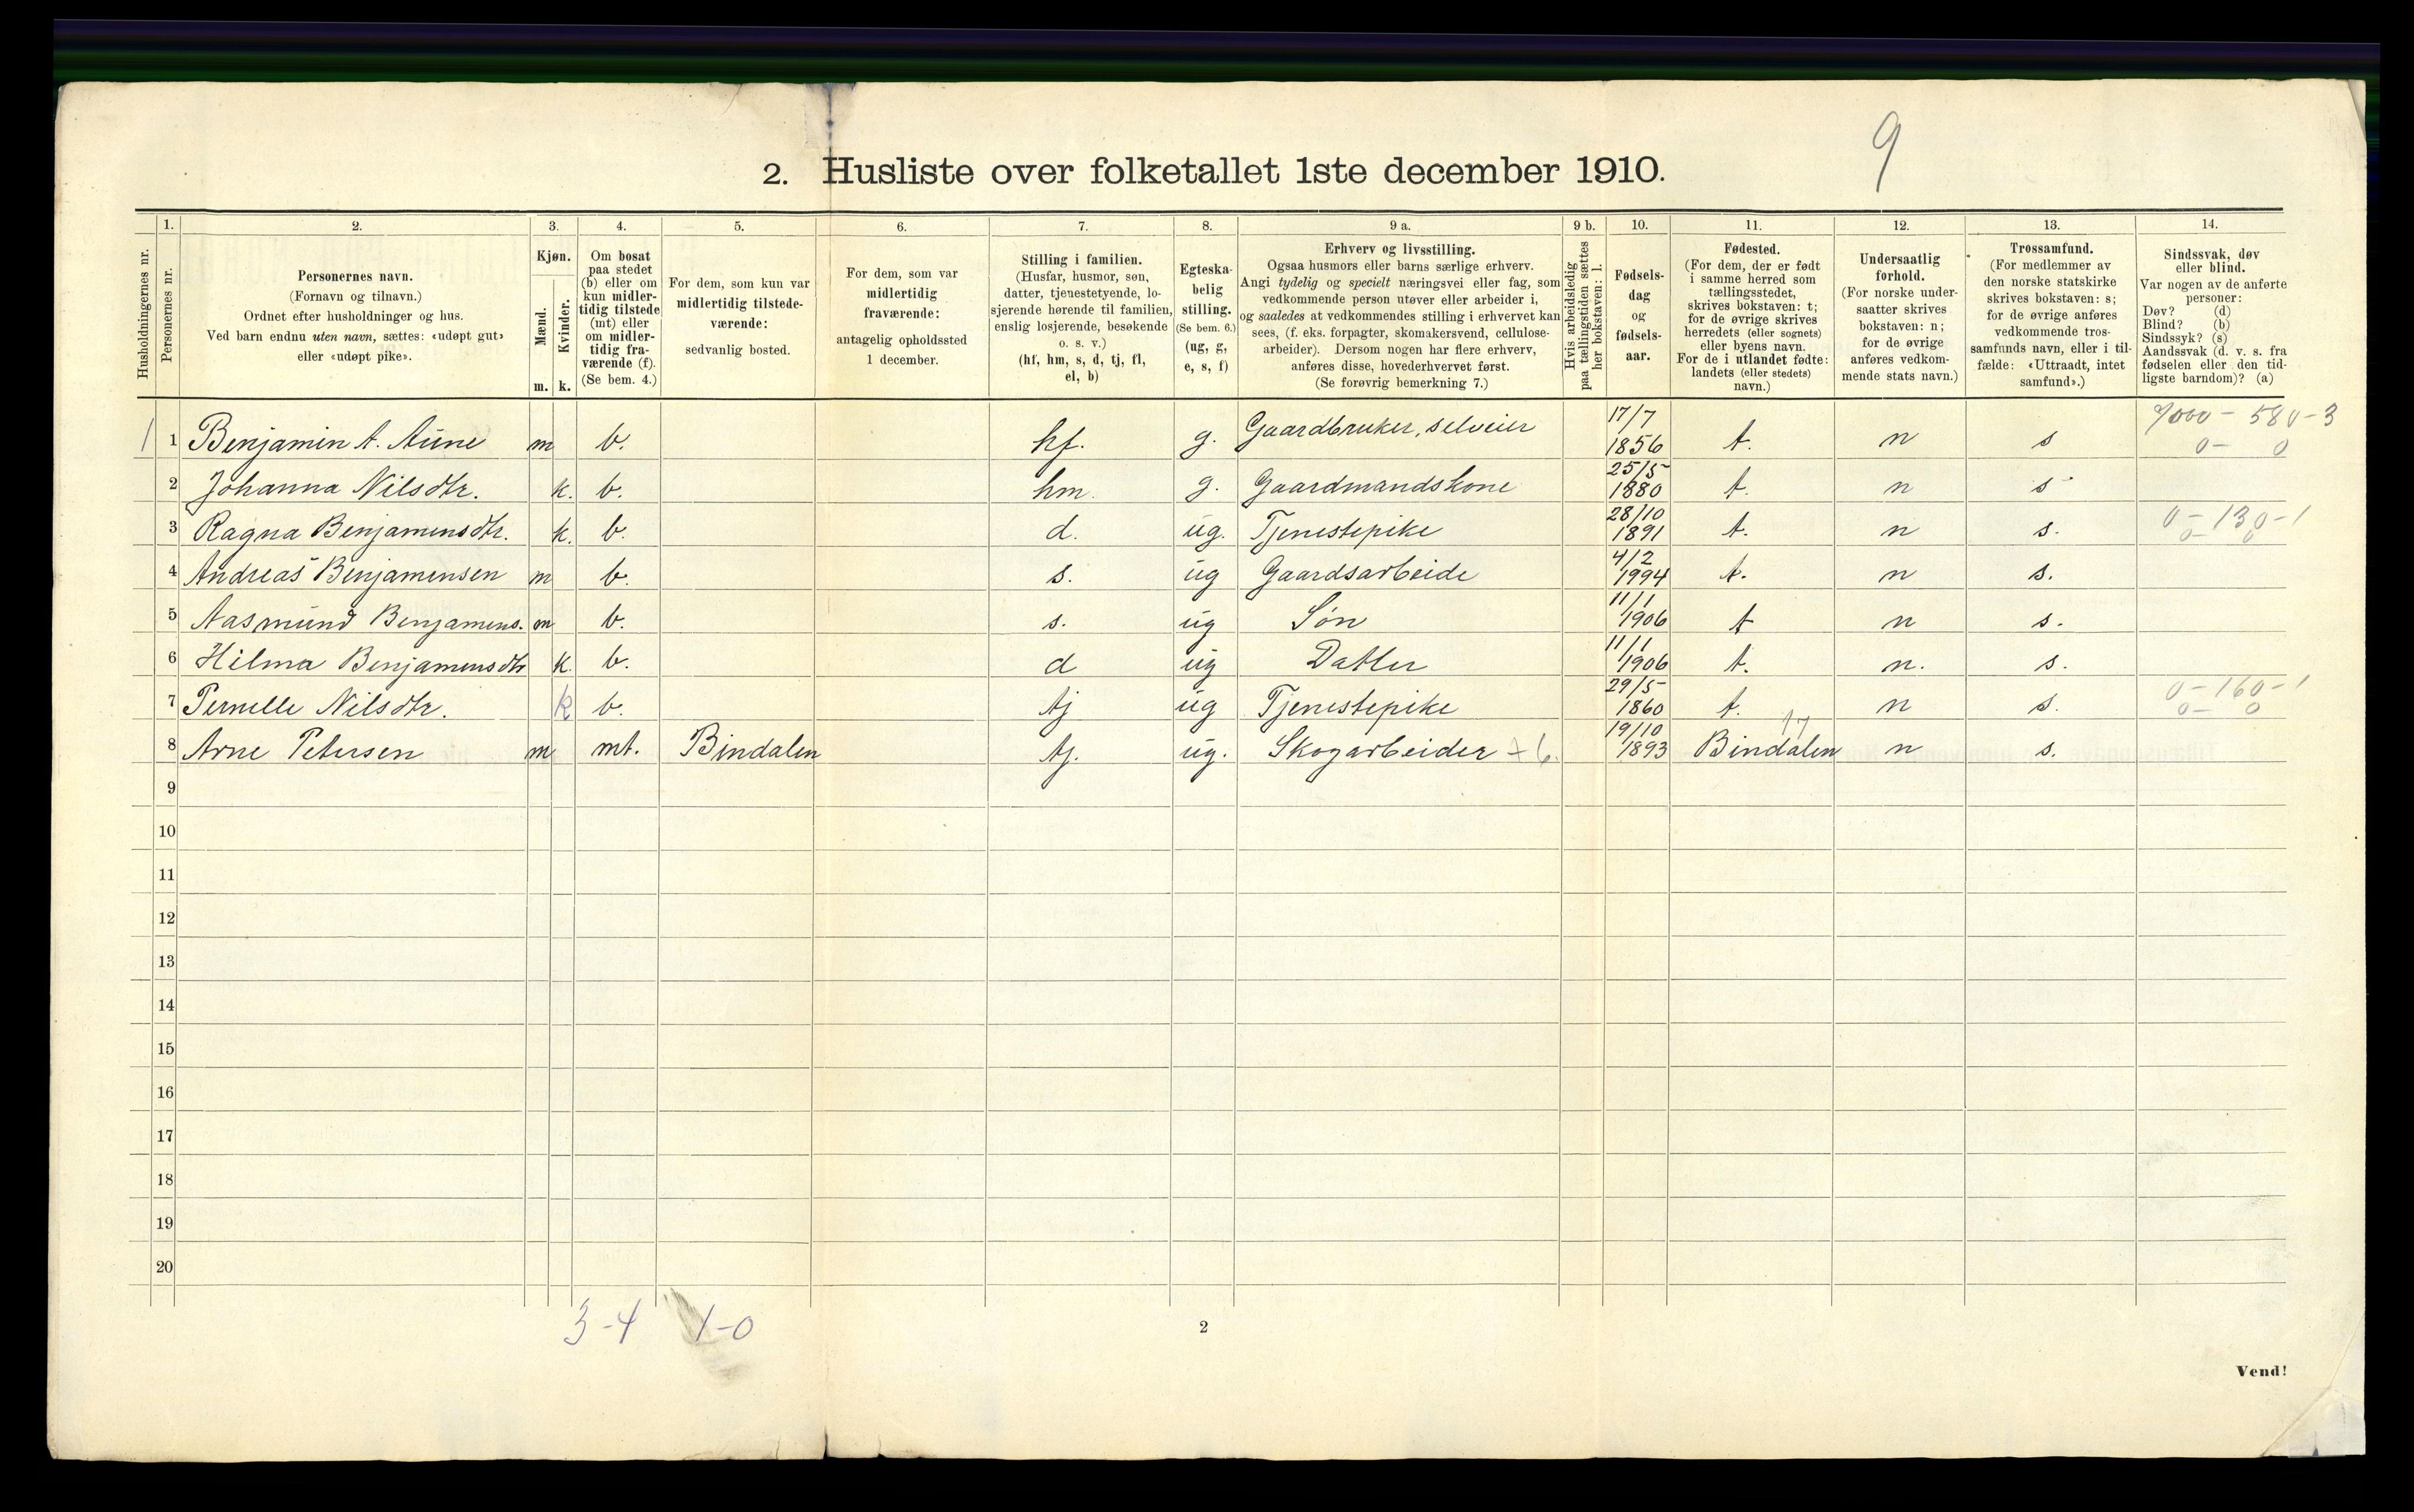 9
2. Husliste over folketallet 1ste december 1910.
Husholdningernes nr.
1. Personernes nr.
2.
Personernes navn.
(Fornavn og tilnavn.)
Ordnet efter husholdninger og hus.
Ved barn endnu uten navn, sættes: «udøpt gut»
eller «udøpt pike».
3.
Kjøn.
Mænd. Kvinder.
m. k.
4.
Om bosat
paa stedet
(b) eller om
kun midler-
tidig tilstede
(mt) eller
om midler-
tidig fra-
værende (f).
(Se bem. 4.)
5.
For dem, som kun var
midlertidig tilstede-
værende:
sedvanlig bosted.
6.
For dem, som var
midlertidig
fraværende:
antagelig opholdssted
1 december.
7.
Stilling i familien.
(Husfar, husmor, søn,
datter, tjenestetyende, lo-
sjerende hørende til familien,
enslig losjerende, besøkende
o. s. v.)
(hf, hm, s, d, tj, fl,
el, b)
8.
Egteska-
belig
stilling.
(Se bem. 6.)
(ug, g,
e, s, f)
9 a.
Erhverv og livsstilling.
Ogsaa husmors eller barns særlige erhverv.
Angi tydelig og specielt næringsvei eller fag, som
vedkommende person utøver eller arbeider i,
og saaledes at vedkommendes stilling i erhvervet kan
sees, (f. eks. forpagter, skomakersvend, cellulose-
arbeider). Dersom nogen har flere erhverv,
anføres disse, hovederhvervet først.
(Se forøvrig bemerkning 7.)
9 b.
Hvis arbeidsledig
paa tællingstiden sættes
her bokstaven: l.
10.
Fødsels-
dag
og
fødsels-
aar.
11.
Fødested.
(For dem, der er født
i samme herred som
tællingsstedet,
skrives bokstaven: t;
for de øvrige skrives
herredets (eller sognets)
eller byens navn.
For de i utlandet fødte:
landets (eller stedets)
navn.)
12.
Undersaatlig
forhold.
(For norske under-
saatter skrives
bokstaven: n;
for de øvrige
anføres vedkom-
mende stats navn.)
13.
Trossamfund.
(For medlemmer av
den norske statskirke
skrives bokstaven: s;
for de øvrige anføres
vedkommende tros-
samfunds navn, eller i til-
fælde: «Uttraadt, intet
samfund».)
14.
Sindssvak, døv
eller blind.
Var nogen av de anførte
personer:
Døv? (d)
Blind? (b)
Sindssyk? (s)
Aandssvak (d. v. s. fra
fødselen eller den tid-
ligste barndom)? (a)
1 1 Benjamin A. Aune m b. hf. g. Gaardbruker, selveier 17/7 1856 t. n s 7000 - 580-3
0- 0
2 Johanna Nilsdtr. k. b. hm. g. Gaardmandskone 25/5 1880 t. n s
3 Ragna Benjamensdtr. k. b. d. ug. Tjenestepike 28/10 1891 t. n s. 0-130-1
0- 0
4 Andreas Benjamensen m b. s. ug Gaardsarbeide 4/2 1994 t. n s.
5 Aasmund Benjamens. m b. s. ug Søn 11/1 1906 t n s.
6 Hilma Benjamensdtr k. b. d ug Datter 11/1 1906 t. n. s.
7 Pernelle Nilsdtr. k b. tj ug Tjenestepike 29/5 1860 t. n s. 0-160-1
0- 0
17
8 Arne Petersen m mt. Bindalen tj. ug. Skogarbeider 19/10 1893 Bindalen n s.
9
10
11
12
13
14
15
16
17
18
19
20
3-4 1-0
2
Vend!